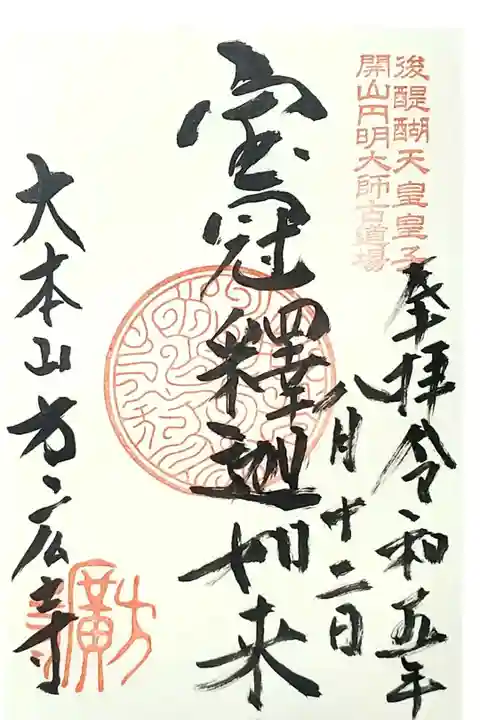 後醍醐天皇皇子
開山円明大師古道場
奉拝令和五年
八月十二日
宝冠釋迦如来
大本山方広寺
方廣